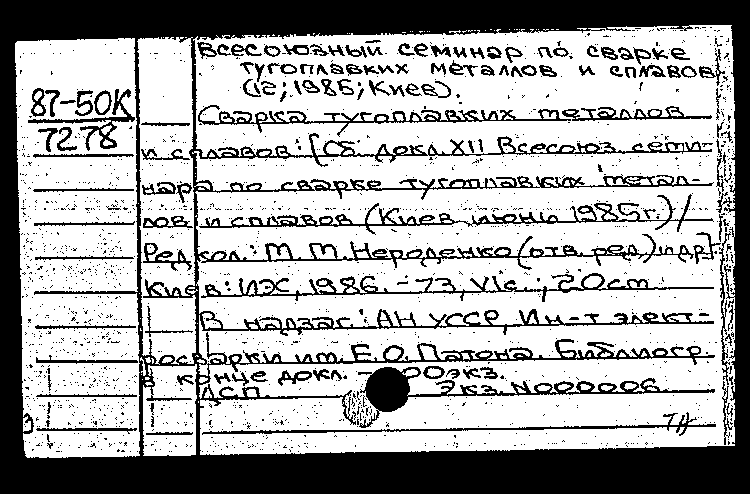 Всесоюзный семинар по сварке
тугоплавких металлов и сплавов
(12; 1985; Киев).
87-50К
7278
Сварка тугоплавких металлов
и сплавов: [Сб. докл. XII Всесоюз. семи-
нара по сварке тугоплавких метал-
лов и сплавов (Киев июнь 1985г.) /
Ред кол.: М. М. Нероденко (отв. ред.) и др].
Киев: ИЭС, 1986. - 73, VI с.; 20 cm.
В надзаг.: АН УССР, Ин-т элект-
росварки им. Е. О. Патона. Библиогр.
в конце докл. - 00экз.
ДСП. Экз. N000006.